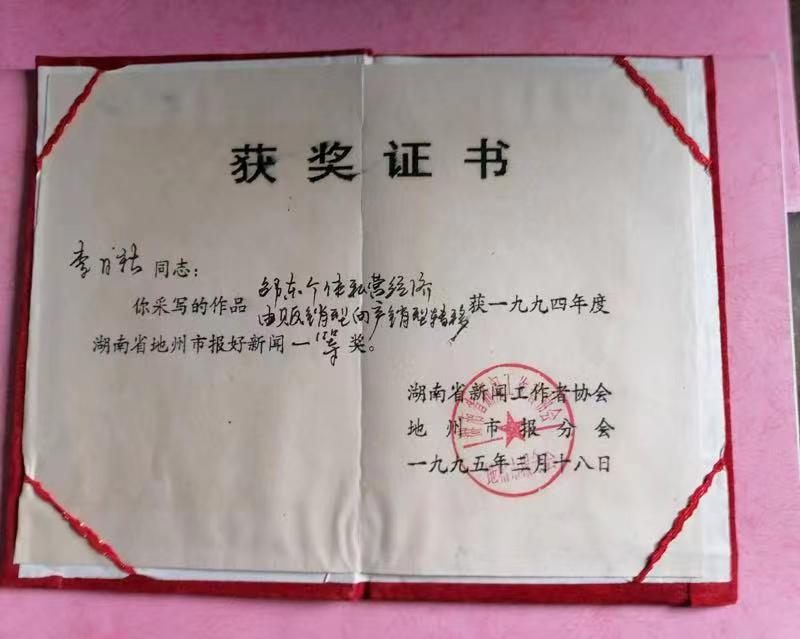 获奖证书
李月秋 同志:
你采写的作品 邵东个体私营经济
由贩销型向产销型转移 获一九九四年度
湖南省地州市报好新闻 一等 奖。
湖南省新闻工作者协会
地州市报分会
一九九五年三月十八日